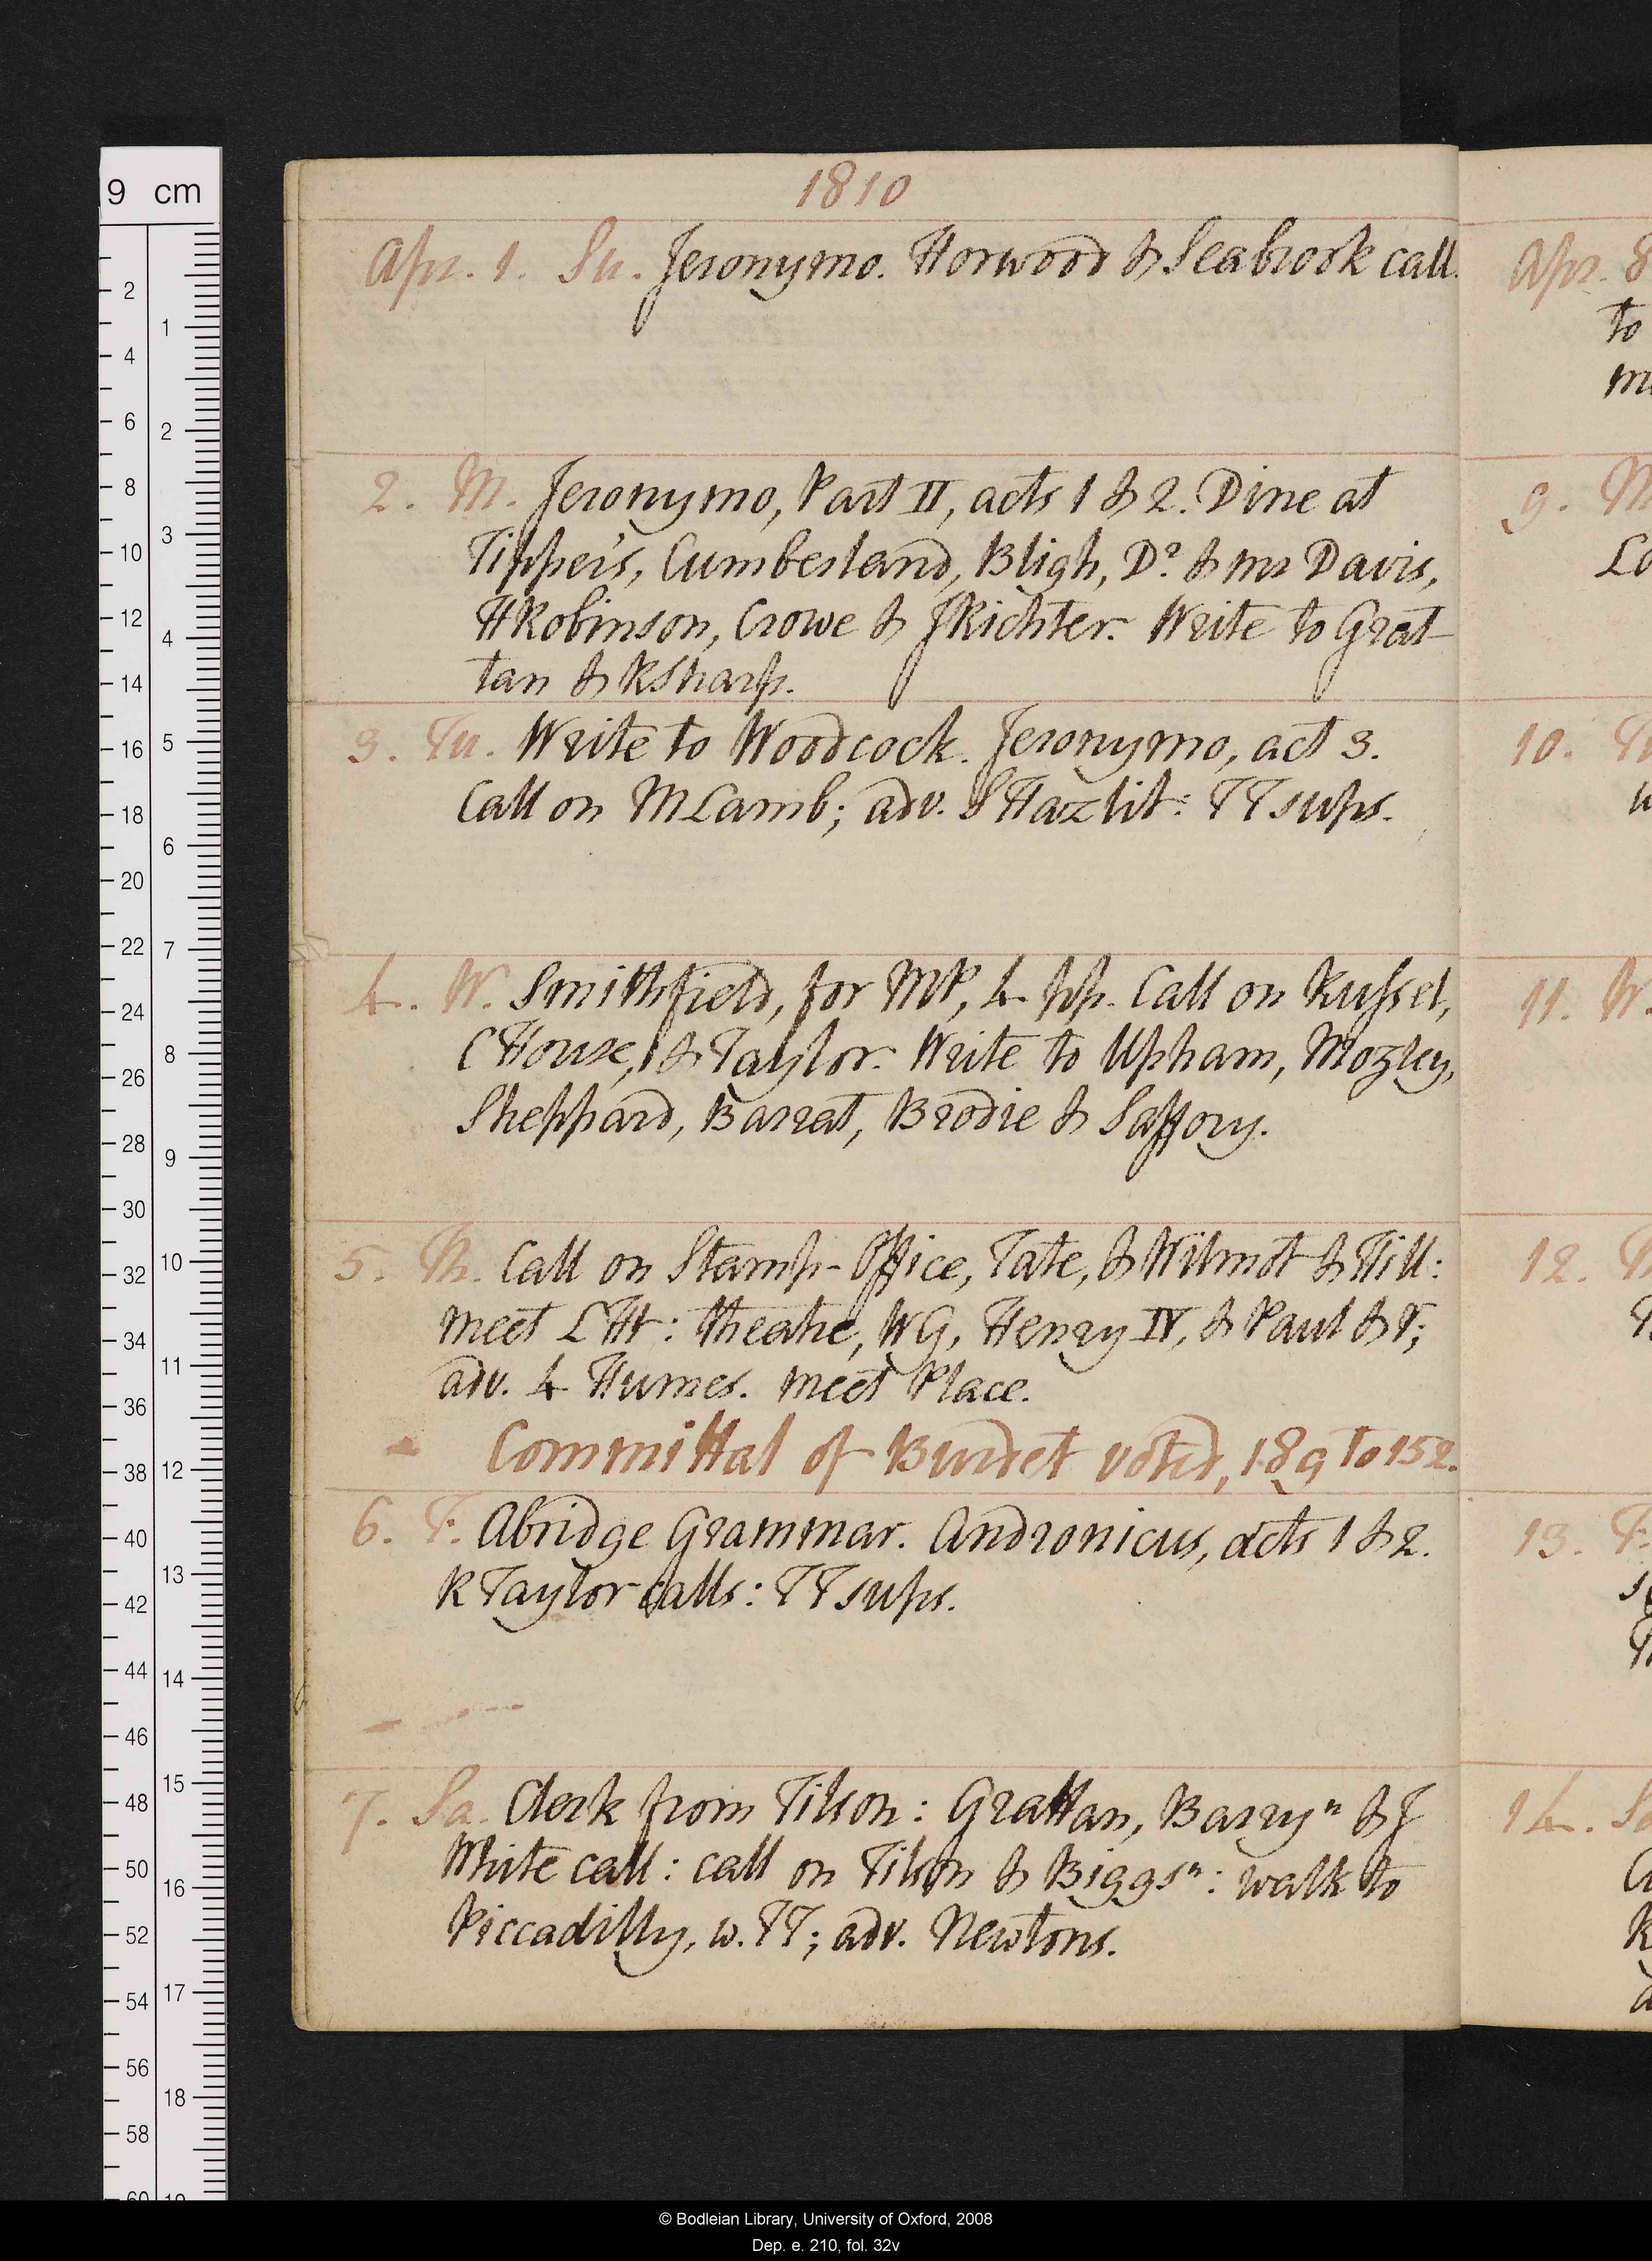 1810
Apr. 1. Su. Jeronymo. Horwood & Seabrook call.
2. M. Jeronymo, Part II, acts 1 & 2. Dine at
Tipper's, Cumberland, Bligh, Dr & mrs Davis,
HRobinson, Crowe & JRichter. Write to Grat-
tan & RSharp.
3. Tu. Write to Woodcock. Jeronymo, act 3.
Call on MLamb; adv. SHazlit: TT sups.
4. W. Smithfield, for MP, 4 pp. Call on Russel,
CHouse, & Taylor. Write to Upham, Mozley,
Sheppard, Barrat, Brodie & Saffory.
5. Th. Call on Stamp-Office, Tate, & Wilmot & Hill:
meet LH: theatre, WG, Henry IV, & Paul & V;
adv. 4 Humes. Meet Place.
Committal of Burdet voted, 189 to 152.
6. F. Abridge Grammar. Andronicus, acts 1 & 2.
RTaylor calls: TT sups.
7. Sa. Clerk from Tilson: Grattan, Barryn & J
White call: call on Tilson & Biggsn: walk to
Piccadilly, w. TT; adv. Newtons.
Apr. 8
to
9. M
10. Tu
11. W.
12. Th
13. F.
14. Sa
9 cm
2
4
6
8
10
12
14
16
18
20
22
24
26
28
30
32
34
36
38
40
42
44
46
48
50
52
54
56
58
60
1
2
3
4
5
6
7
8
9
10
11
12
13
14
15
16
17
18
© Bodleian Library, University of Oxford, 2008
Dep. e. 210, fol. 32v